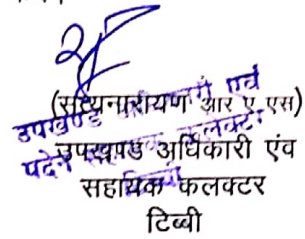 (सत्यनारायण आर ए एस)
उपखण्ड अधिकारी एंव
सहायिक कलक्टर
टिब्बी
उपखण्ड अधिकारी एवं
पदेन सहायक कलक्टर
टिब्बी